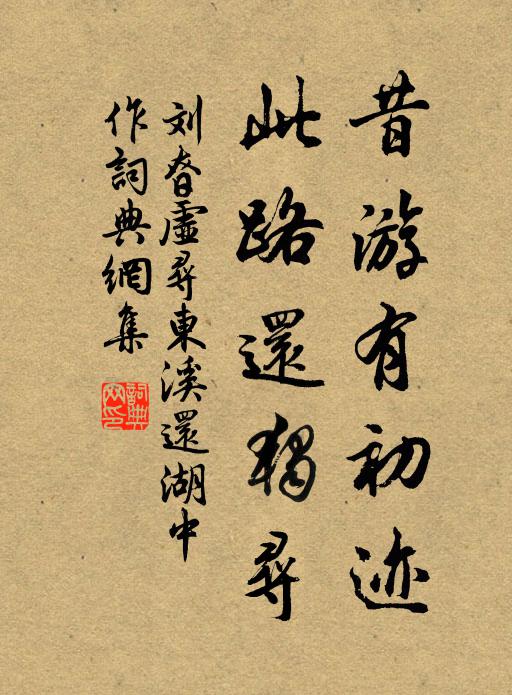 昔游有初迹
此路還獨尋
刘眘虛尋東溪還湖中
作詞典網集
詞典
网印